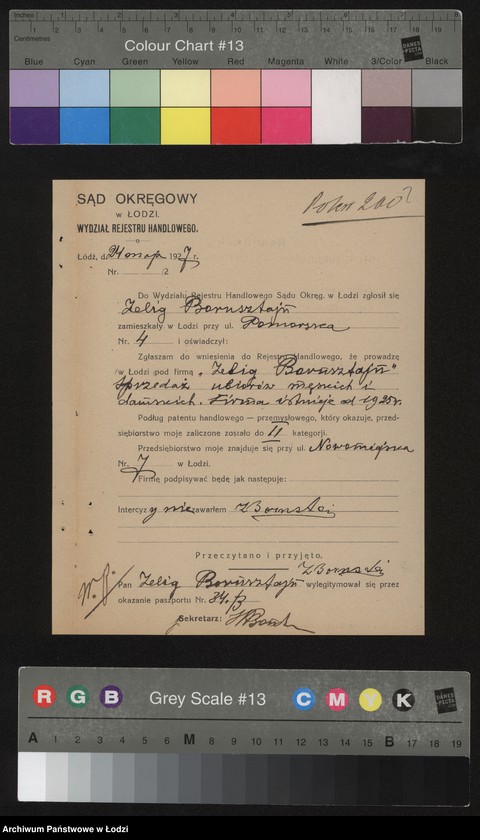 Inches 1 2 3 4 5 6 7 8
Centimetres 1 2 3 4 5 6 7 8 9 10 11 12 13 14 15 16 17 18 19
Colour Chart #13
DANES PICTA
Blue Cyan Green Yellow Red Magenta White 3/Color Black
SĄD OKRĘGOWY
W ŁODZI.
WYDZIAŁ REJESTRU HANDLOWEGO.
Łódź, d. 24 maja 1927 r.
Nr. /2
Do Wydziału Rejestru Handlowego Sądu Okręg. w Łodzi zgłosił się
Zelig Borusztajn
zamieszkały w Łodzi przy ul. Pomorska
Nr. 4 i oświadczył:
Zgłaszam do wniesienia do Rejestru Handlowego, że prowadzę
w Łodzi pod firmą „Zelig Borusztajn"
sprzedaż ubiorów męskich i
damskich. Firma istnieje od 1925 r.
Podług patentu handlowego — przemysłowego, który okazuje, przed-
siębiorstwo moje zaliczone zostało do II kategorji.
Przedsiębiorstwo moje znajduje się przy ul. Nowomiejska
Nr. 7 w Łodzi.
Firmę podpisywać będę jak następuje:
Intercyzy nie zawarłem
Przeczytano i przyjęto.
Pan Zelig Borusztajn wylegitymował się przez
okazanie paszportu Nr.
Sekretarz:
R G B Grey Scale #13 C M Y K
DANES PICTA
A 1 2 3 4 5 6 M 8 9 10 11 12 13 14 15 B 17 18 19
Archiwum Państwowe w Łodzi